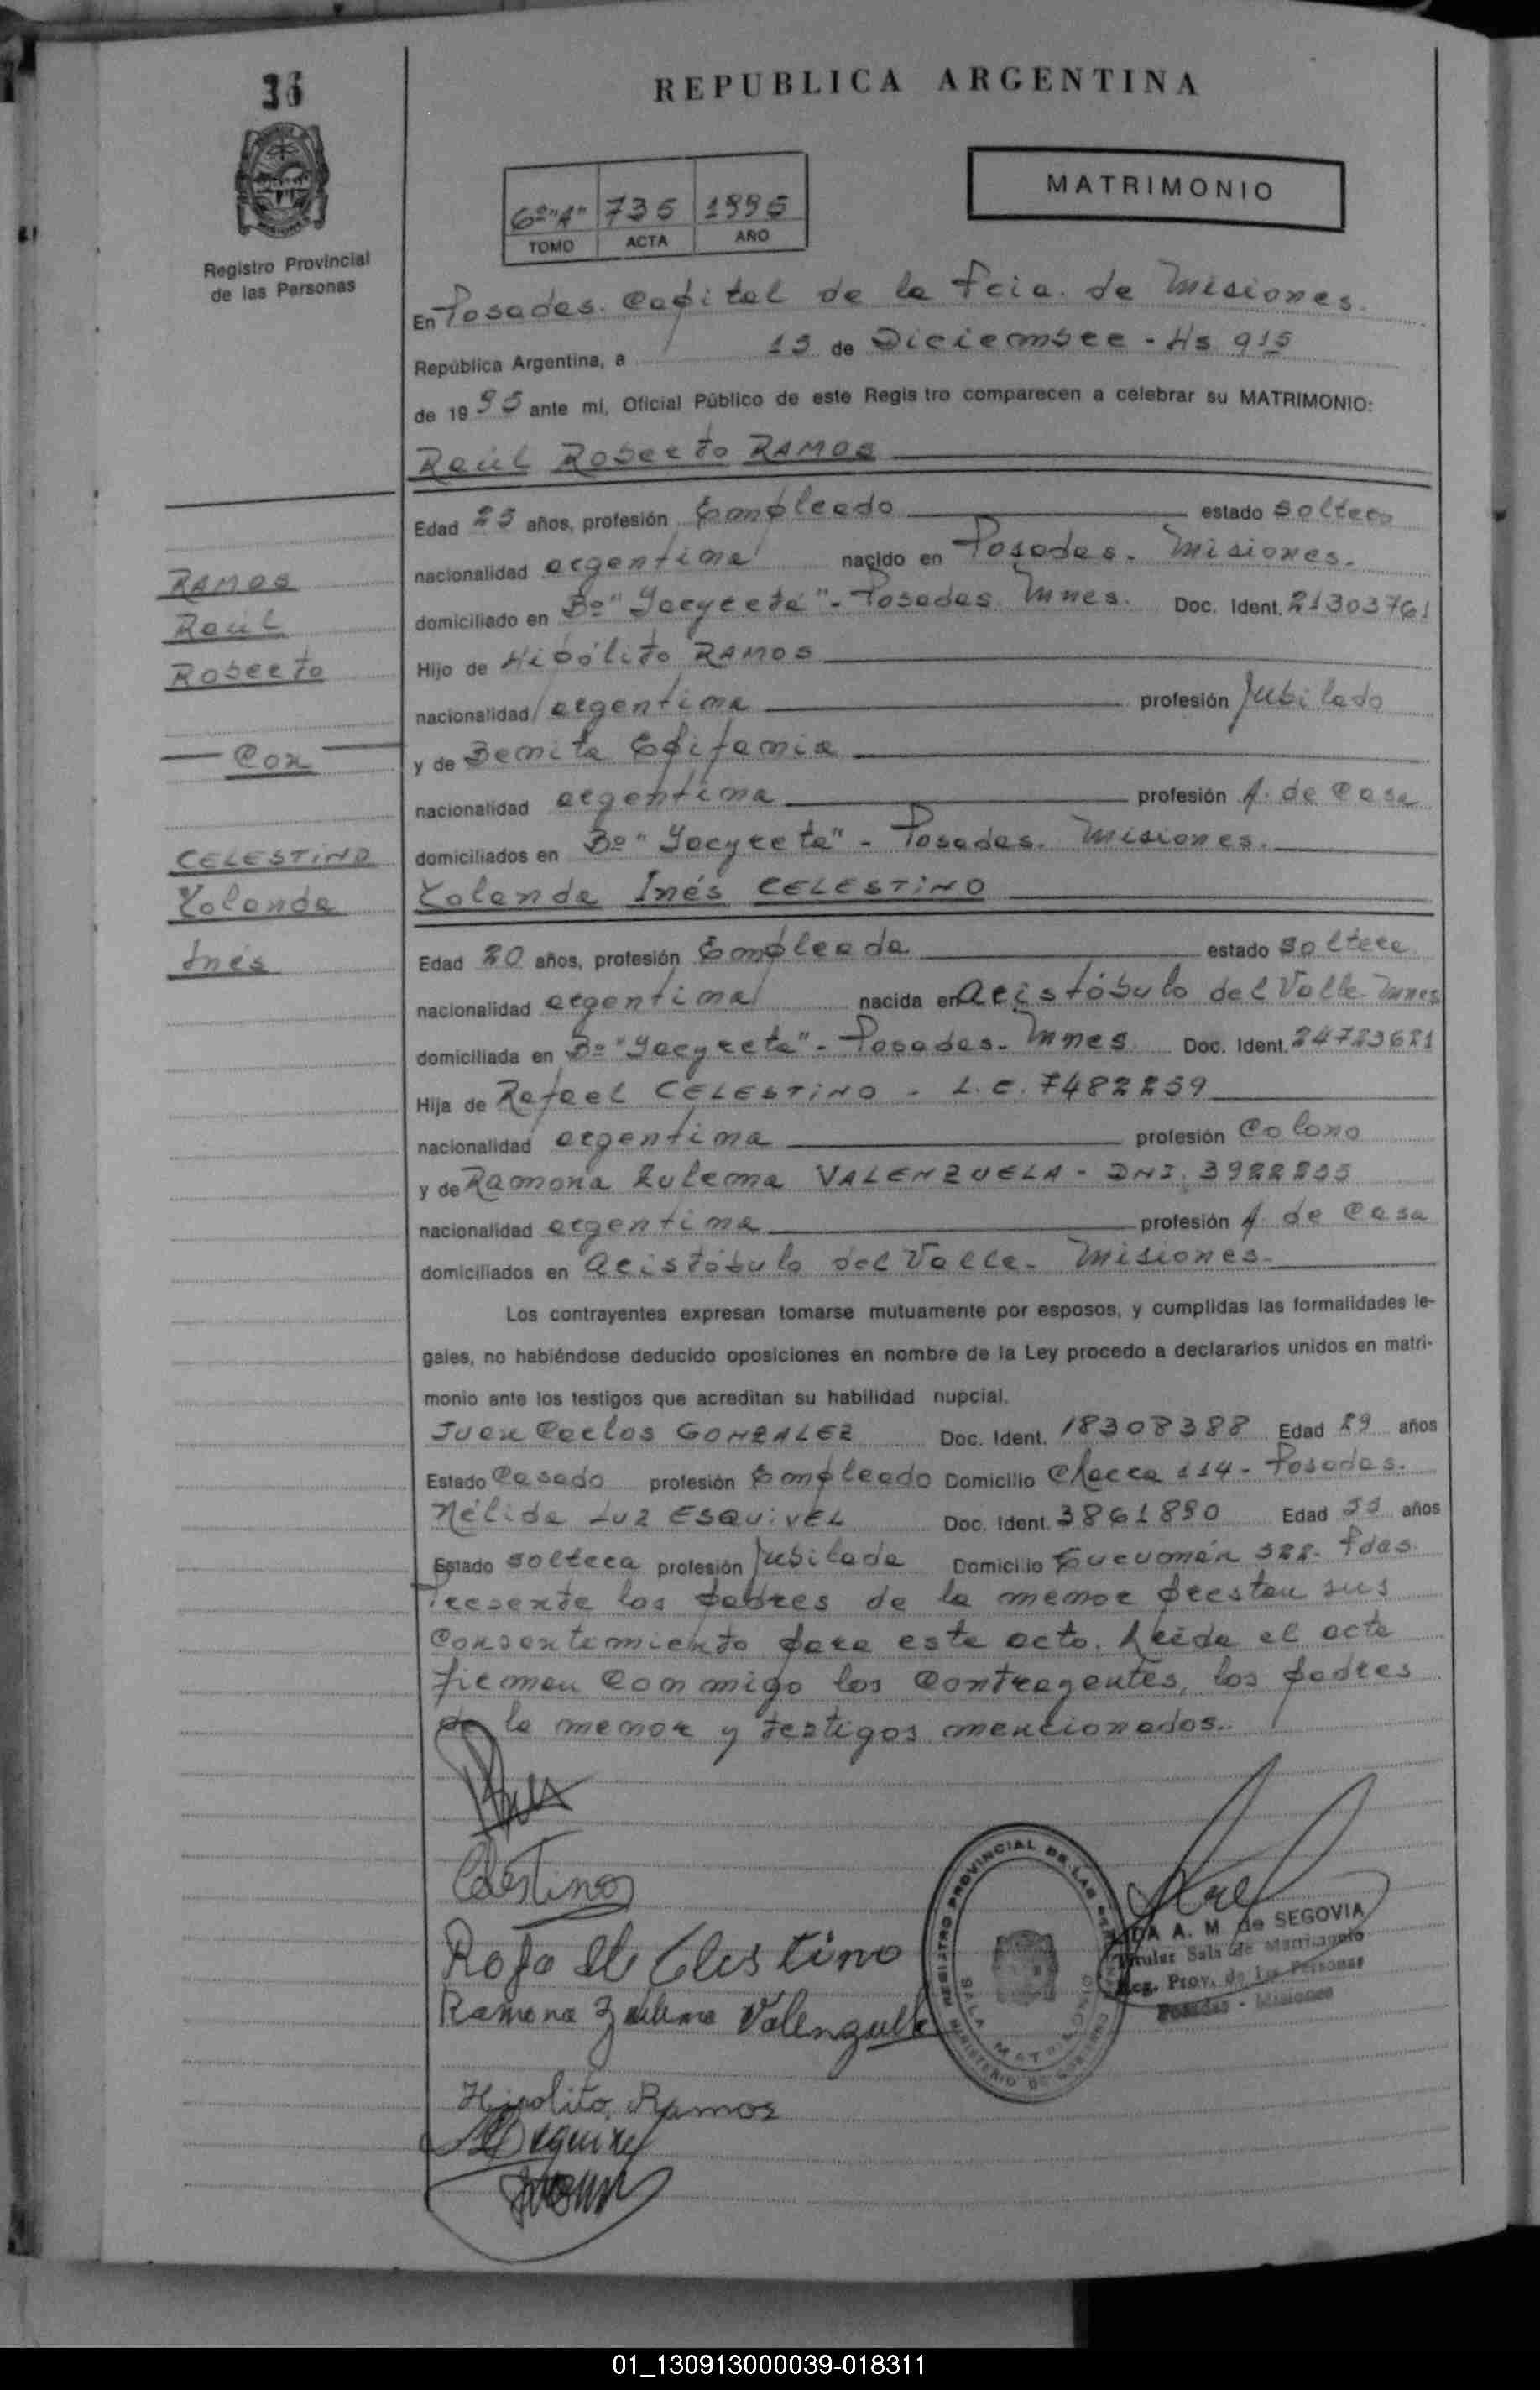 36
REPUBLICA ARGENTINA
MATRIMONIO
6º"A" 735 1995
TOMO ACTA AÑO
Registro Provincial
de las Personas
En Posadas. Capital de la Pcia. de Misiones.
República Argentina, a 15 de Diciembre - Hs 915
de 1995 ante mí, Oficial Público de este Registro comparecen a celebrar su MATRIMONIO:
Raúl Roberto RAMOS
Edad 25 años, profesión Empleado estado soltero
nacionalidad argentina nacido en Posadas. Misiones.
domiciliado en Bº "Yacyretá" - Posadas Mnes. Doc. Ident. 21303761
Hijo de Hipólito RAMOS
nacionalidad argentina profesión Jubilado
y de Benita Epifania
nacionalidad argentina profesión A. de Casa
domiciliados en Bº "Yacyreta" - Posadas. Misiones.
Yolanda Inés CELESTINO
Edad 20 años, profesión Empleada estado soltera
nacionalidad argentina nacida en Aristóbulo del Valle Mnes
domiciliada en Bº "Yacyreta" - Posadas - Mnes. Doc. Ident. 24723621
Hija de Rafael CELESTINO - L.E. 7482259
nacionalidad argentina profesión Colono
y de Ramona Zulema VALENZUELA - DNI. 3922255
nacionalidad argentina profesión A. de Casa
domiciliados en Aristóbulo del Valle - Misiones.
Los contrayentes expresan tomarse mutuamente por esposos, y cumplidas las formalidades le-
gales, no habiéndose deducido oposiciones en nombre de la Ley procedo a declararlos unidos en matri-
monio ante los testigos que acreditan su habilidad nupcial.
Juan Carlos GONZALEZ Doc. Ident. 18308388 Edad 29 años
Estado Casado profesión Empleado Domicilio Chacra 114 - Posadas.
Nélida Luz ESQUIVEL Doc. Ident. 3861890 Edad 55 años
Estado soltera profesión Jubilada Domicilio Tucumán 322. Pdas.
Presente los padres de la menor prestan sus
Consentimiento para este acto. Leída el acta
firman Conmigo los Contrayentes, los padres
de la menor y testigos mencionados.
RAMOS
Raúl
Roberto
Con
CELESTINO
Yolanda
Inés
Celestino
Celestino
Ramona Zulema Valenzuela
Hipolito Ramos
Esquivel
REGISTRO PROVINCIAL DE LAS PERSONAS
SALA MATRIMONIO
MINISTERIO DE GOBIERNO
A. M. de SEGOVIA
Titular Sala de Matrimonio
Reg. Prov. de las Personas
Posadas - Misiones
01_130913000039-018311